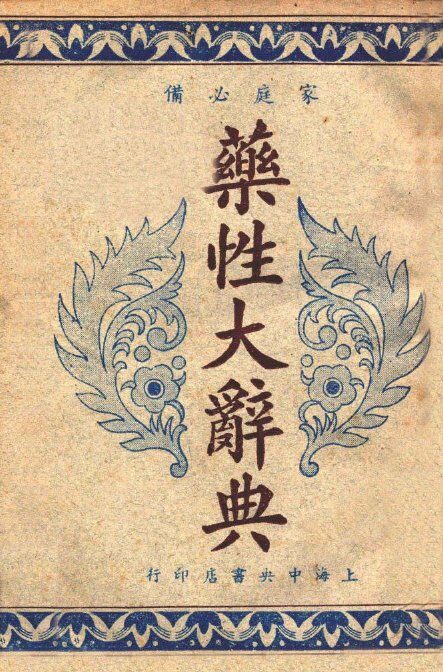 家庭必備
藥性大辭典
上海中央書店印行